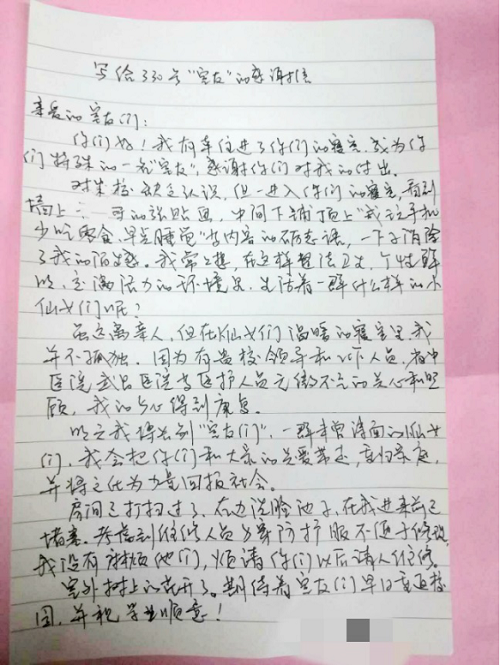 写给330号“室友”的感谢信
亲爱的室友们：
你们好！我有幸住进了你们的寝室，成为你
们特殊的一名“室友”，感谢你们对我的付出。
对贵校缺乏认识，但一进入你们的寝室，看到
墙上的张贴画，中间下铺顶上“戒玩手机
少吃零食、早点睡觉”等内容的励志语，一下子消除
了我的陌生感。我常常想，在这样整洁卫生，个性鲜
明，充满活力的环境里，生活着一群什么样的小
仙女们呢？
虽远离亲人，但在仙女们温暖的寝室里，我
并不孤独。因为有贵校领导和工作人员，省中
医院武昌医院等医护人员无微不至的关心和照
顾，我的身心得到康复。
明天我将告别“室友们”，一群未曾谋面的仙女
们，我会把你们和大家的关爱带走，重归家庭，
并将之化为力量回报社会。
房间已打扫过了，左边洗脸池子，在我进来前已
堵塞。考虑到维修人员穿防护服不便于修理，
我没有麻烦他们，烦请你们以后请人维修。
室外树上的花开了。期待着室友们早日重返校
园，并祝学业顺意！